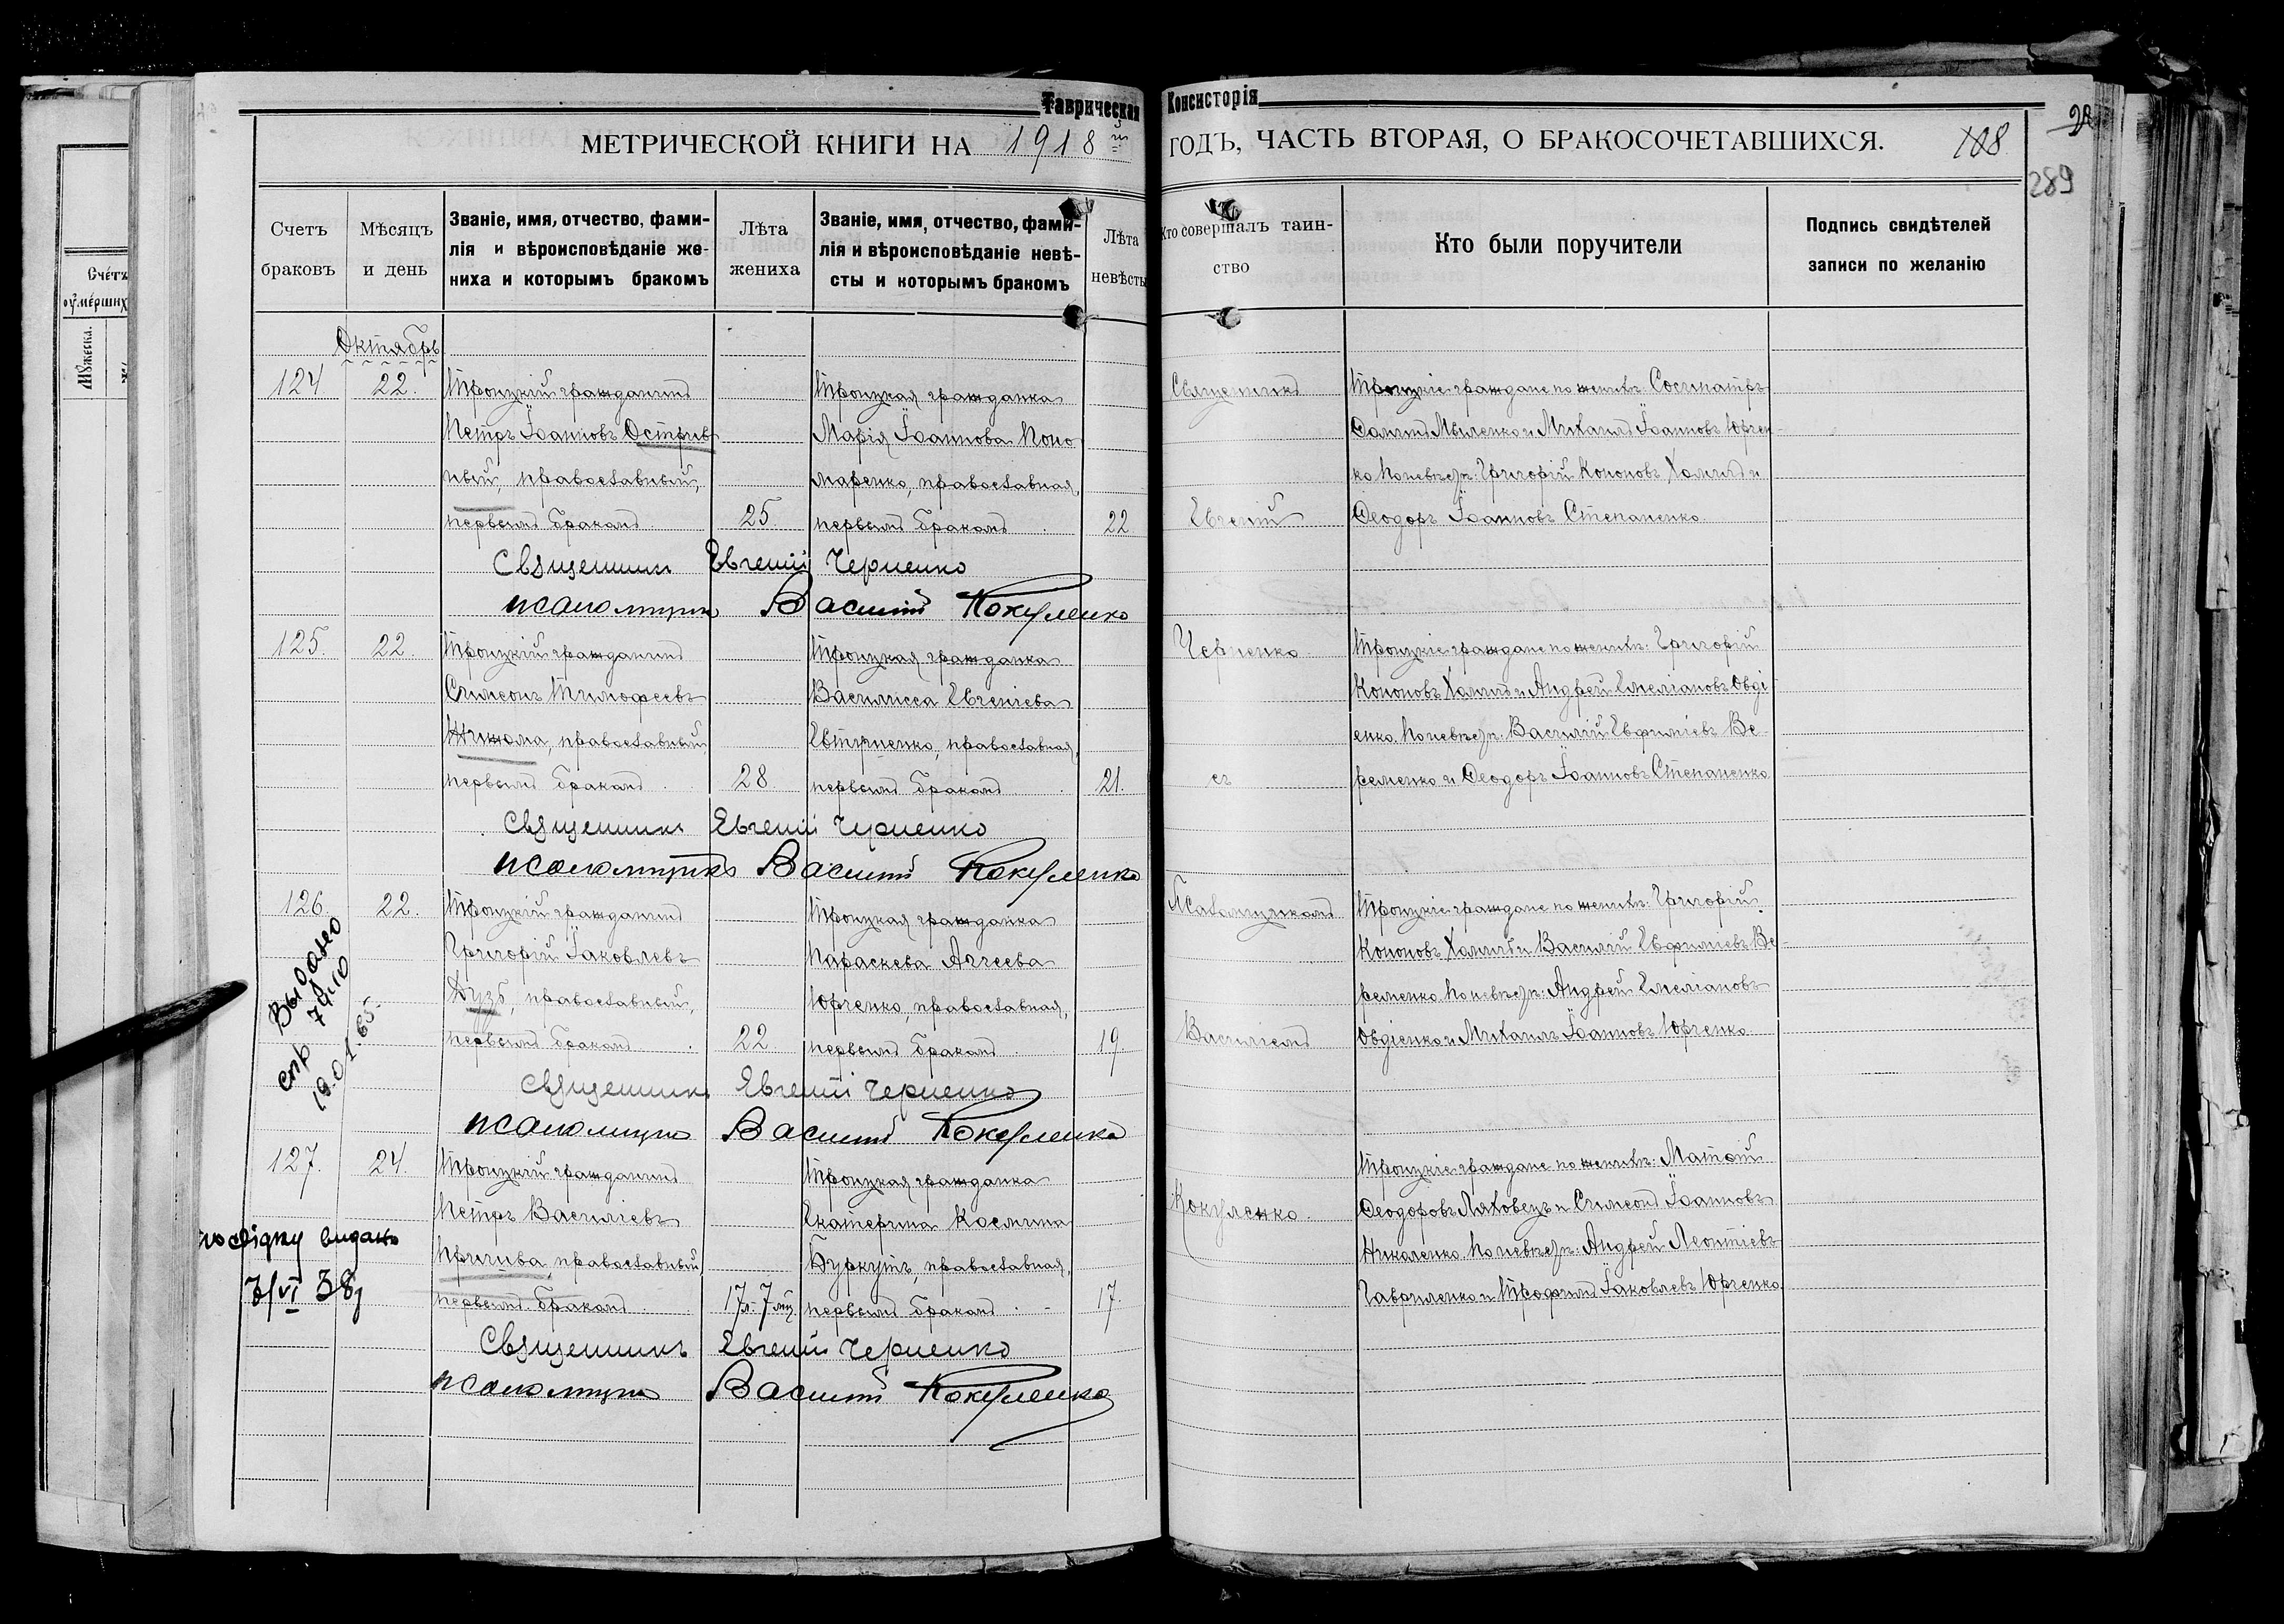 Таврическая Консисторія
МЕТРИЧЕСКОЙ КНИГИ НА 1918 й ГОДЪ, ЧАСТЬ ВТОРАЯ, О БРАКОСОЧЕТАВШИХСЯ.
188
289
Счетъ
умершихъ
Мужеска.
Счетъ
браковъ
Мѣсяцъ
и день
Званіе, имя, отчество, фами-
лія и вѣроисповѣданіе же-
ниха и которымъ бракомъ
Лѣта
жениха
Званіе, имя, отчество, фами-
лія и вѣроисповѣданіе невѣ-
сты и которымъ бракомъ
Лѣта
невѣсты
Кто совершалъ таин-
ство
Кто были поручители
Подпись свидѣтелей
записи по желанію
Октябрь
124. 22.
Троицкій гражданинъ
Петръ Іоанновъ Острив
ный, православный,
первымъ бракомъ
25.
Троицкая гражданка
Марія Іоаннова Поно
маренко, православная,
первымъ бракомъ
22
Троицкіе граждане по женихѣ: Сосипатръ
Мыленко и Михаилъ Іоанновъ Юрчен
ко по невѣстѣ: Григорій Кононовъ Халилъ и
Ѳеодоръ Іоанновъ Степаненко.
Священникъ Евгеній Черненко
псаломщикъ Василій Кокуленко
125. 22.
Троицкій гражданинъ
Симеонъ Тимофеевъ
православный,
первымъ бракомъ
28.
Троицкая гражданка
Василисса Евгеніева
православная,
первымъ бракомъ
21.
Троицкіе граждане по женихѣ: Григорій
Кононовъ Халилъ и Андрей Емеліановъ Овді
енко. по невѣстѣ: Василій Евфиміевъ Ве
ременко и Ѳеодоръ Іоанновъ Степаненко
Священникъ Евгеній Черненко
псаломщикъ Василій Кокуленко
126. 22.
Троицкій гражданинъ
Григорій Іаковлевъ
Дузь, православный,
первымъ бракомъ
22.
Троицкая гражданка
Параскева Аггеева
Юрченко, православная,
первымъ бракомъ
19.
Троицкіе граждане по женихѣ: Григорій
Кононовъ Халилъ и Василій Евфиміевъ Ве
ременко. по невѣстѣ: Андрей Емеліановъ
Овдіенко и Михаилъ Іоанновъ Юрченко.
Священникъ Евгеній Черненко
псаломщикъ Василій Кокуленко
Выдано
19.01.65
127. 24.
Троицкій гражданинъ
Петръ Василіевъ
Пригива, православный,
первымъ бракомъ
17 л. 7 мц.
Троицкая гражданка
Екатерина Космина
Буркутъ, православная,
первымъ бракомъ
17.
Троицкіе граждане по женихѣ: Матѳій
Ѳеодоровъ Ляховецъ и Симеонъ Іоанновъ
Николенко. по невѣстѣ: Андрей Леонтіевъ
Гавриленко и Трофимъ Іаковлевъ Юрченко.
Священникъ Евгеній Черненко
псаломщикъ Василій Кокуленко
видано
3/VI 38
Священникъ
Евгеній
Черненко
съ
Псаломщикомъ
Василіемъ
Кокуленко.